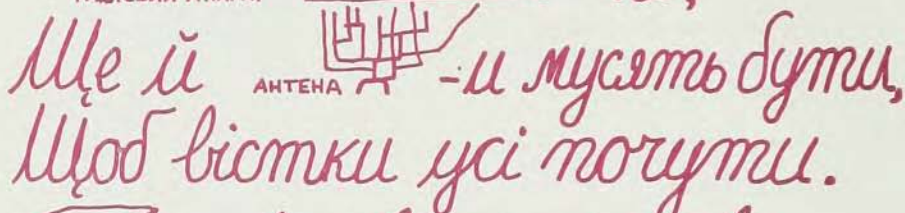 Ще й АНТЕНА -и мусять бути,
Щоб вістки усі почути.